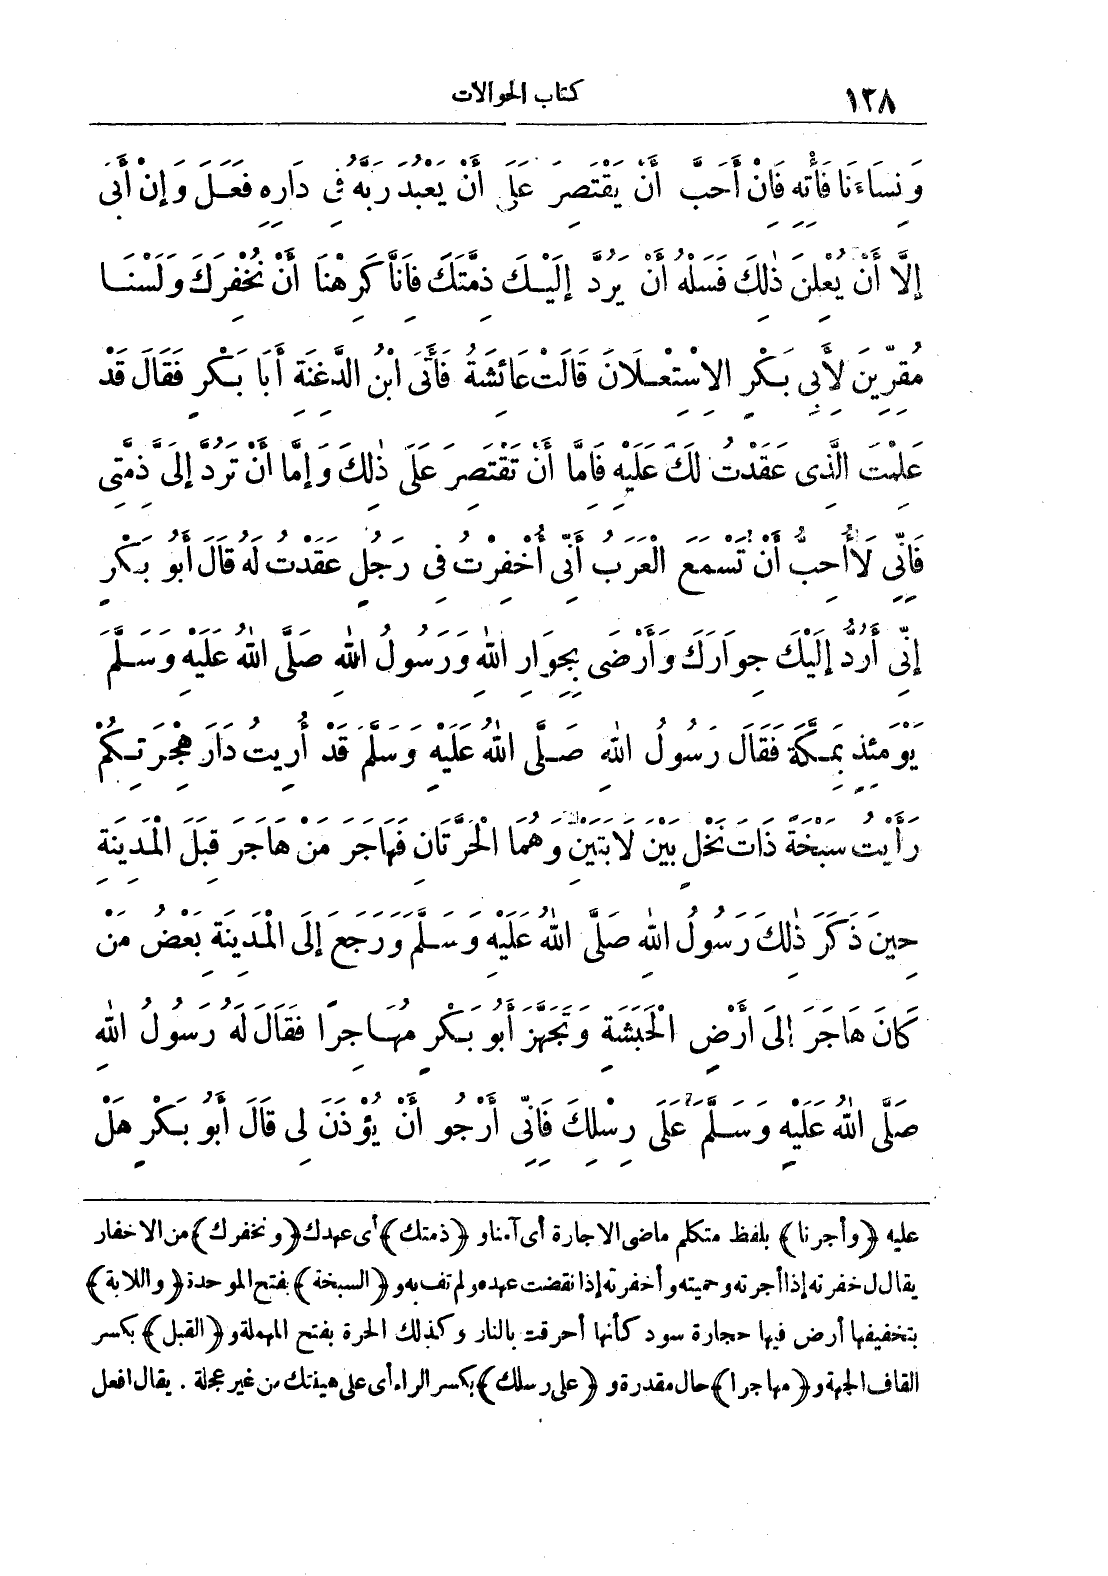 ١٢٨
كتاب الحوالات
وَنِسَاءَنَا فَأْتِهِ فَإِنْ أَحَبَّ أَنْ يَقْتَصِرَ عَلَى أَنْ يَعْبُدَ رَبَّهُ فِى دَارِهِ فَعَلَ وَإِنْ أَبَى
إِلَّا أَنْ يُعْلِنَ ذٰلِكَ فَسَلْهُ أَنْ يَرُدَّ إِلَيْكَ ذِمَّتَكَ فَإِنَّا كَرِهْنَا أَنْ نُخْفِرَكَ وَلَسْنَا
مُقِرِّينَ لِأَبِى بَكْرٍ الِاسْتِعْلَانَ قَالَتْ عَائِشَةُ فَأَتَى ابْنُ الدَّغِنَةِ أَبَا بَكْرٍ فَقَالَ قَدْ
عَلِمْتَ الَّذِى عَقَدْتُ لَكَ عَلَيْهِ فَإِمَّا أَنْ تَقْتَصِرَ عَلَى ذٰلِكَ وَإِمَّا أَنْ تَرُدَّ إِلَىَّ ذِمَّتِى
فَإِنِّى لَا أُحِبُّ أَنْ تَسْمَعَ الْعَرَبُ أَنِّى أُخْفِرْتُ فِى رَجُلٍ عَقَدْتُ لَهُ قَالَ أَبُو بَكْرٍ
إِنِّى أَرُدُّ إِلَيْكَ جِوَارَكَ وَأَرْضَى بِجِوَارِ اللهِ وَرَسُولُ اللهِ صَلَّى اللهُ عَلَيْهِ وَسَلَّمَ
يَوْمَئِذٍ بِمَكَّةَ فَقَالَ رَسُولُ اللهِ صَلَّى اللهُ عَلَيْهِ وَسَلَّمَ قَدْ أُرِيتُ دَارَ هِجْرَتِكُمْ
رَأَيْتُ سَبْخَةً ذَاتَ نَخْلٍ بَيْنَ لَابَتَيْنِ وَهُمَا الْحَرَّتَانِ فَهَاجَرَ مَنْ هَاجَرَ قِبَلَ الْمَدِينَةِ
حِينَ ذَكَرَ ذٰلِكَ رَسُولُ اللهِ صَلَّى اللهُ عَلَيْهِ وَسَلَّمَ وَرَجَعَ إِلَى الْمَدِينَةِ بَعْضُ مَنْ
كَانَ هَاجَرَ إِلَى أَرْضِ الْحَبَشَةِ وَتَجَهَّزَ أَبُو بَكْرٍ مُهَاجِرًا فَقَالَ لَهُ رَسُولُ اللهِ
صَلَّى اللهُ عَلَيْهِ وَسَلَّمَ عَلَى رِسْلِكَ فَإِنِّى أَرْجُو أَنْ يُؤْذَنَ لِى قَالَ أَبُو بَكْرٍ هَلْ
عليه ﴿وأجرنا﴾ بلفظ متكلم ماضى الاجارة أى آمنا و ﴿ذمتك﴾ أى عهدك ﴿ونخفرك﴾ من الاخفار
يقال ل خفرته إذا أجرته وحميته وأخفرته إذا نقضت عهده ولم تف به و ﴿السبخة﴾ بفتح الموحدة ﴿واللابة﴾
بتخفيفها أرض فيها حجارة سود كأنها أحرقت بالنار وكذلك الحرة بفتح المهملة و ﴿القبل﴾ بكسر
القاف الجهة و ﴿مهاجرا﴾ حال مقدرة و ﴿على رسلك﴾ بكسر الراء أى على هينتك من غير عجلة . يقال افعل